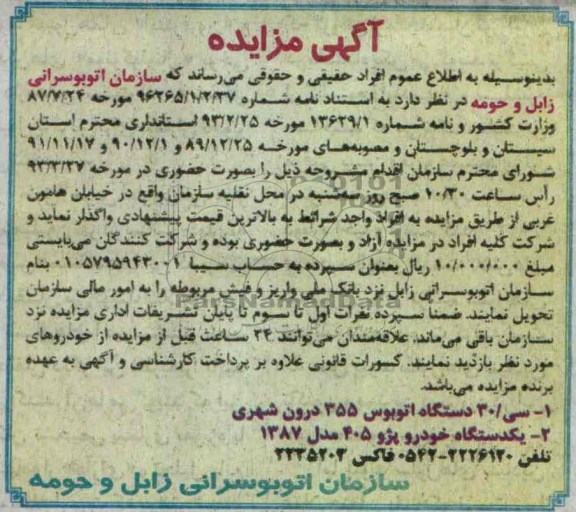 آگهی مزایده
بدینوسیله به اطلاع عموم افراد حقیقی و حقوقی می‌رساند که سازمان اتوبوسرانی
زابل و حومه در نظر دارد به استناد نامه شماره ۹۶۲۶۵/۱/۲/۳۷ مورخه ۸۷/۷/۲۴
وزارت کشور و نامه شماره ۱۳۶۲۹/۱ مورخه ۹۳/۲/۲۵ استانداری محترم استان
سیستان و بلوچستان و مصوبه‌های مورخه ۸۹/۱۲/۲۵ و ۹۰/۱۲/۱ و ۹۱/۱۱/۱۷
شورای محترم سازمان اقدام مشروحه ذیل را بصورت حضوری در مورخه ۹۳/۳/۲۷
رأس ساعت ۱۰/۳۰ صبح روز سه‌شنبه در محل نقلیه سازمان واقع در خیابان هامون
غربی از طریق مزایده به افراد واجد شرائط به بالاترین قیمت پیشنهادی واگذار نماید و
شرکت کلیه افراد در مزایده آزاد و بصورت حضوری بوده و شرکت کنندگان می‌بایستی
مبلغ ۱۰/۰۰۰/۰۰۰ ریال بعنوان سپرده به حساب سیبا ۰۱۰۵۷۹۵۹۴۳۰۰۱ بنام
سازمان اتوبوسرانی زابل نزد بانک ملی واریز و فیش مربوطه را به امور مالی سازمان
تحویل نمایند. ضمناً سپرده نفرات اول تا سوم تا پایان تشریفات اداری مزایده نزد
سازمان باقی می‌ماند. علاقه‌مندان می‌توانند ۲۴ ساعت قبل از مزایده از خودروهای
مورد نظر بازدید نمایند. کسورات قانونی علاوه بر پرداخت کارشناسی و آگهی به عهده
برنده مزایده می‌باشد.
۱- سی/۳۰ دستگاه اتوبوس ۳۵۵ درون شهری
۲- یکدستگاه خودرو پژو ۴۰۵ مدل ۱۳۸۷
تلفن ۲۲۲۶۱۲۰-۰۵۴۲ فاکس ۲۲۳۵۲۰۲
سازمان اتوبوسرانی زابل و حومه
ParsNamadData